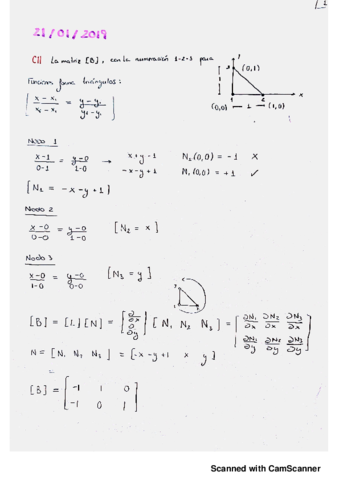 1
21/01/2019
C11 La matriz [B], con la numeración 1-2-3 para
y
3 (0,1)
1
1 2 x
(0,0) — 1 — (1,0)
Funciones forma triángulos:
[ x - x₁ / x₂ - x₁ = y - y₁ / y₂ - y₁ ]
Nodo 1
x-1 / 0-1 = y-0 / 1-0 → x+y-1 N₁(0,0) = -1 X
-x-y+1 N₁(0,0) = +1 ✓
[N₁ = -x-y+1]
Nodo 2
x-0 / 0-0 = y-0 / 1-0 [N₂ = x]
Nodo 3
x-0 / 1-0 = y-0 / 0-0 [N₃ = y]
[B] = [L][N] = [∂/∂x ∂/∂y] [N₁ N₂ N₃] = [∂N₁/∂x ∂N₂/∂x ∂N₃/∂x
∂N₁/∂y ∂N₂/∂y ∂N₃/∂y]
N = [N₁ N₂ N₃] = [-x-y+1 x y]
[B] = [-1 1 0
-1 0 1]
Scanned with CamScanner